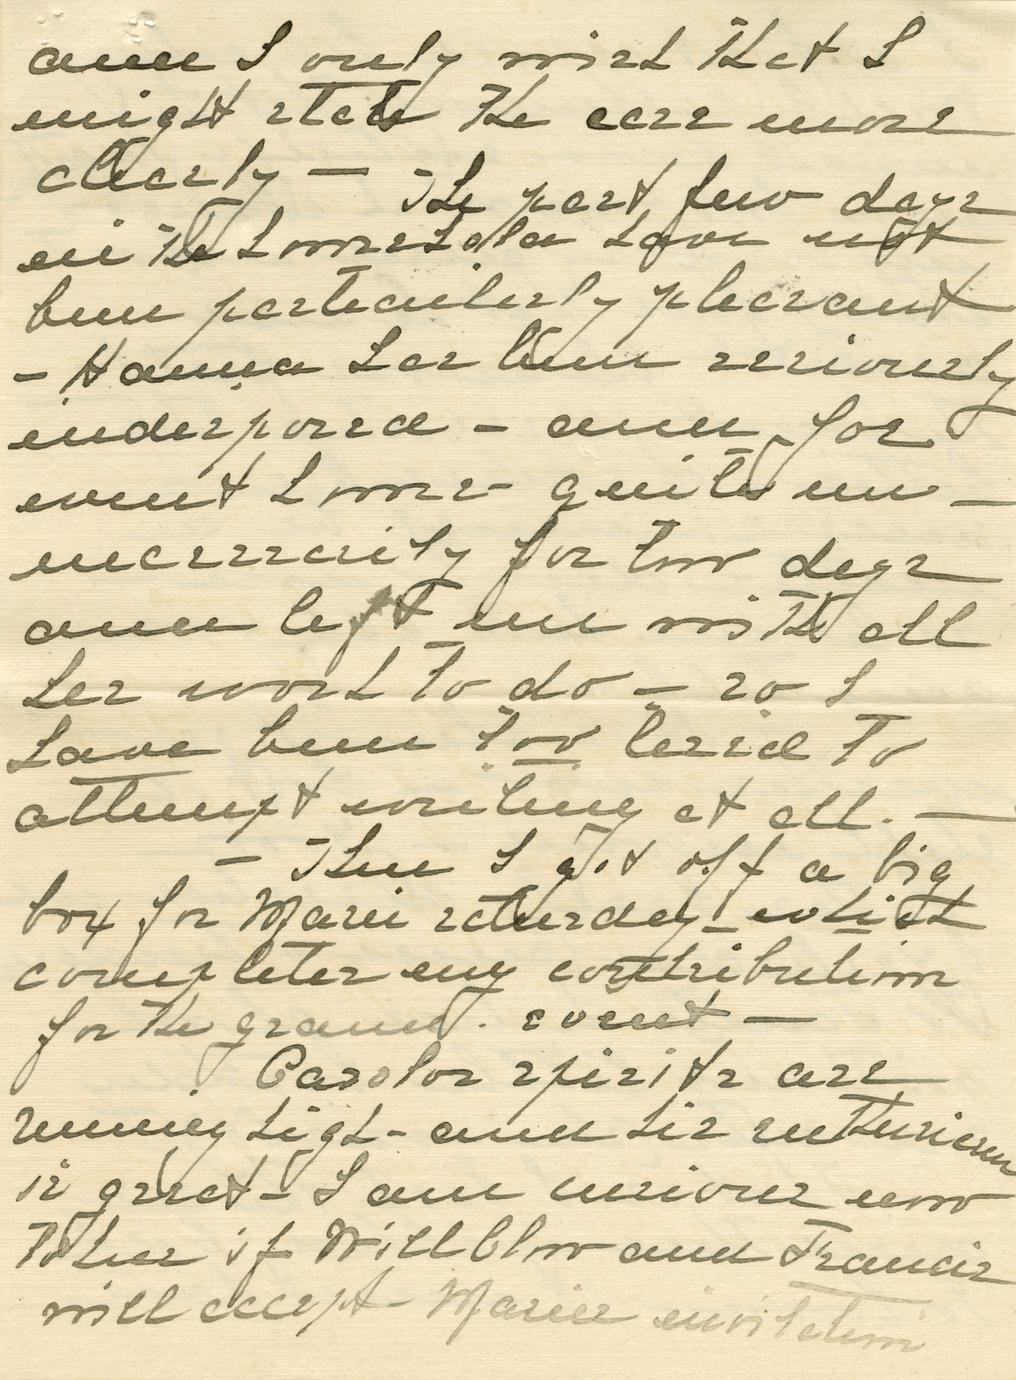 and I only wish that I
might state the case more
clearly — The past few days
in the household have not
been particularly pleasant
- Hanna has been seriously
indisposed - and for
went home quite un -
necessarily for two days
and left me with all
her work to do - so I
have been too tired to
attempt writing at all. —
- Then I got off a big
box for Marie saturday - which
completes my contribution
for the grand. event —
Carolos spirits are
running high - and his enthusiasm
is great - I am curious now
to hear if Will Blow and Francis
will accept Maries invitation